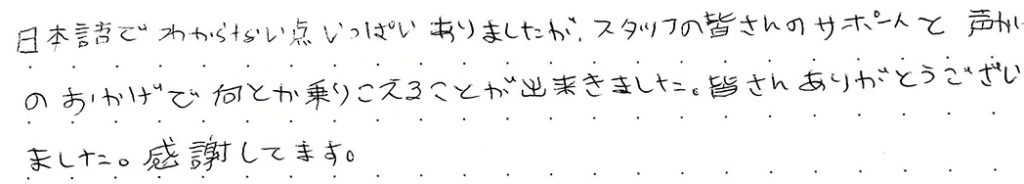 日本語でわからない点いっぱいありましたが、スタッフの皆さんのサポートと声か
のおかげで何とか乗りこえることが出来きました。皆さんありがとうござい
ました。感謝してます。